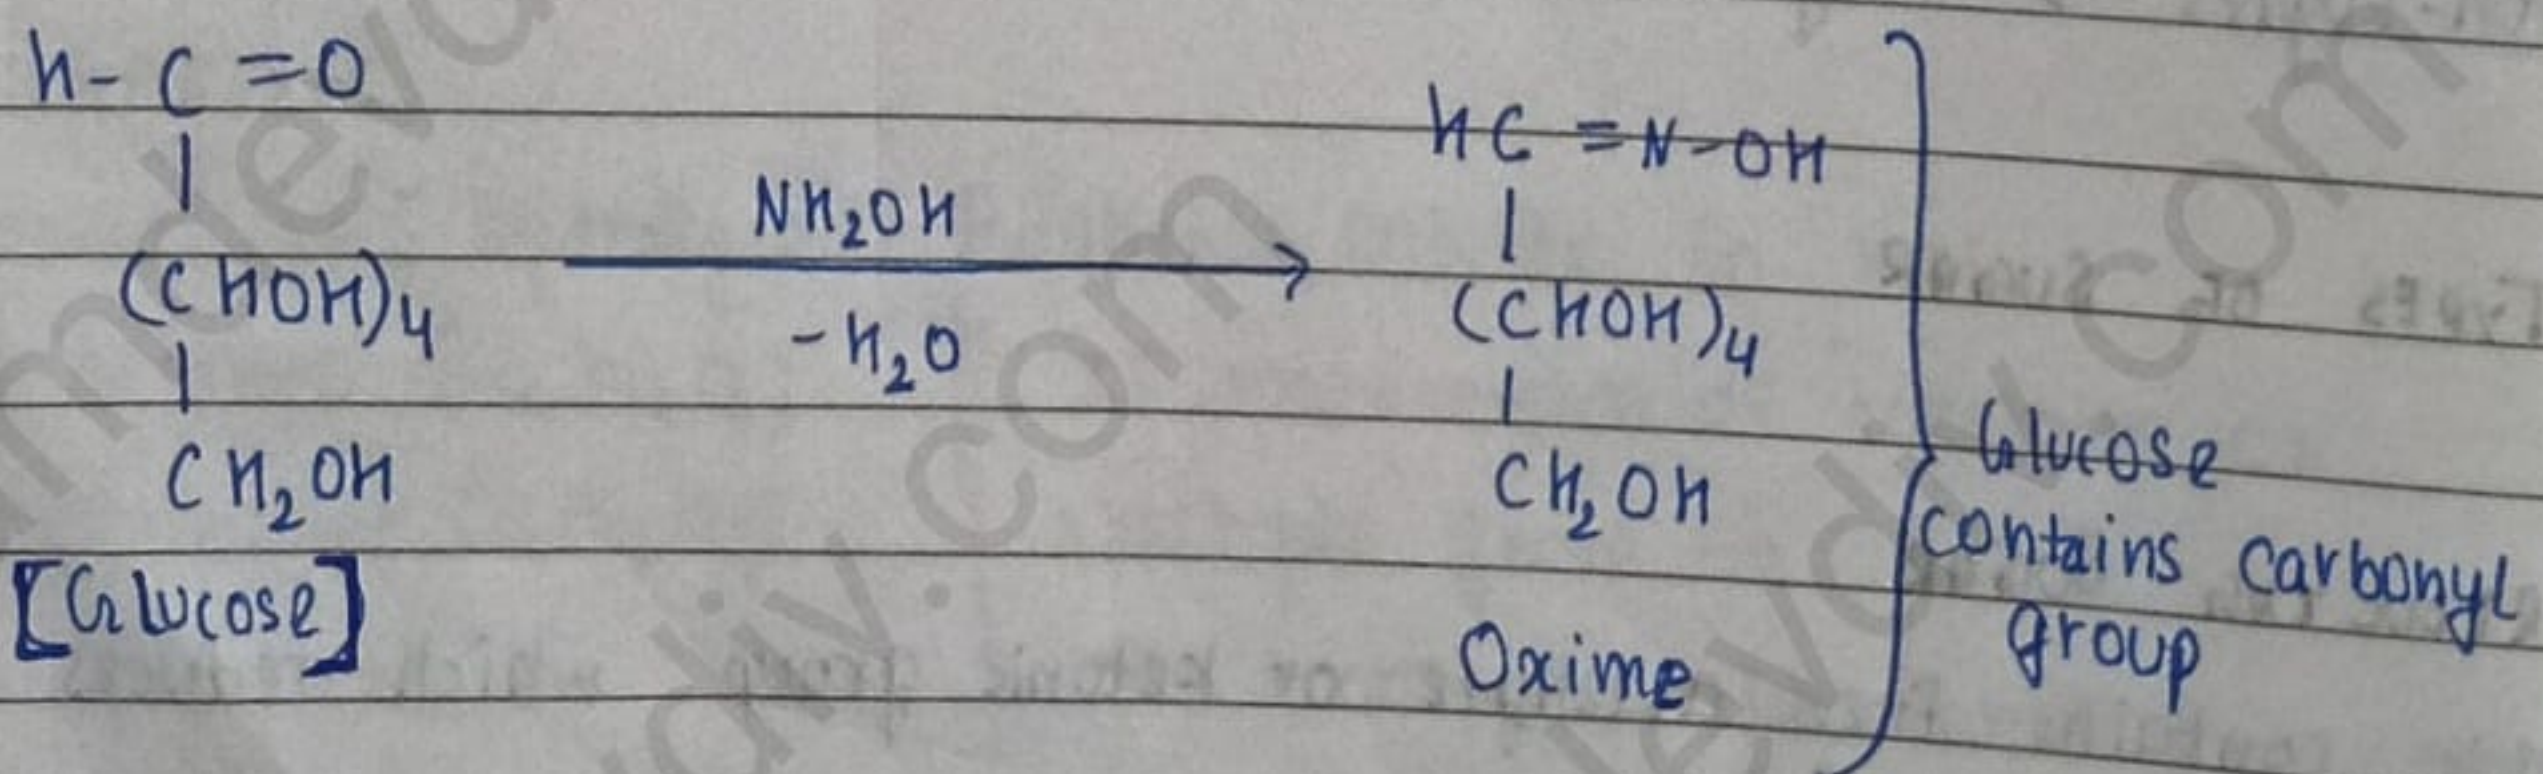 H-C=O
|
(CHOH)4
|
CH2OH
[Glucose]
NH2OH
-H2O
HC=N-OH
|
(CHOH)4
|
CH2OH
Oxime
Glucose
contains carbonyl
group